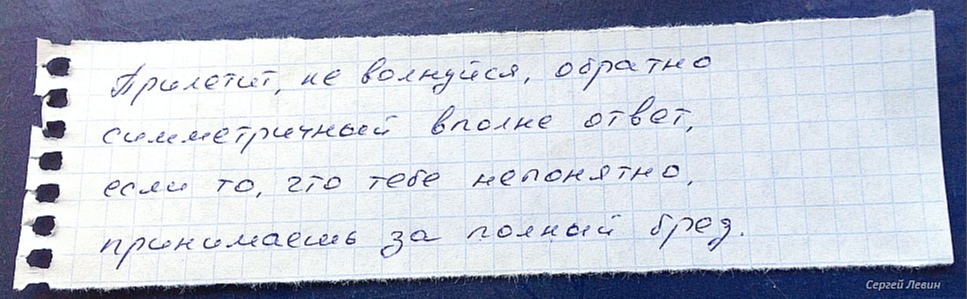 Прилетит, не волнуйся, обратно
симметричный вполне ответ,
если то, что тебе непонятно,
принимаешь за полный бред.
Сергей Левин